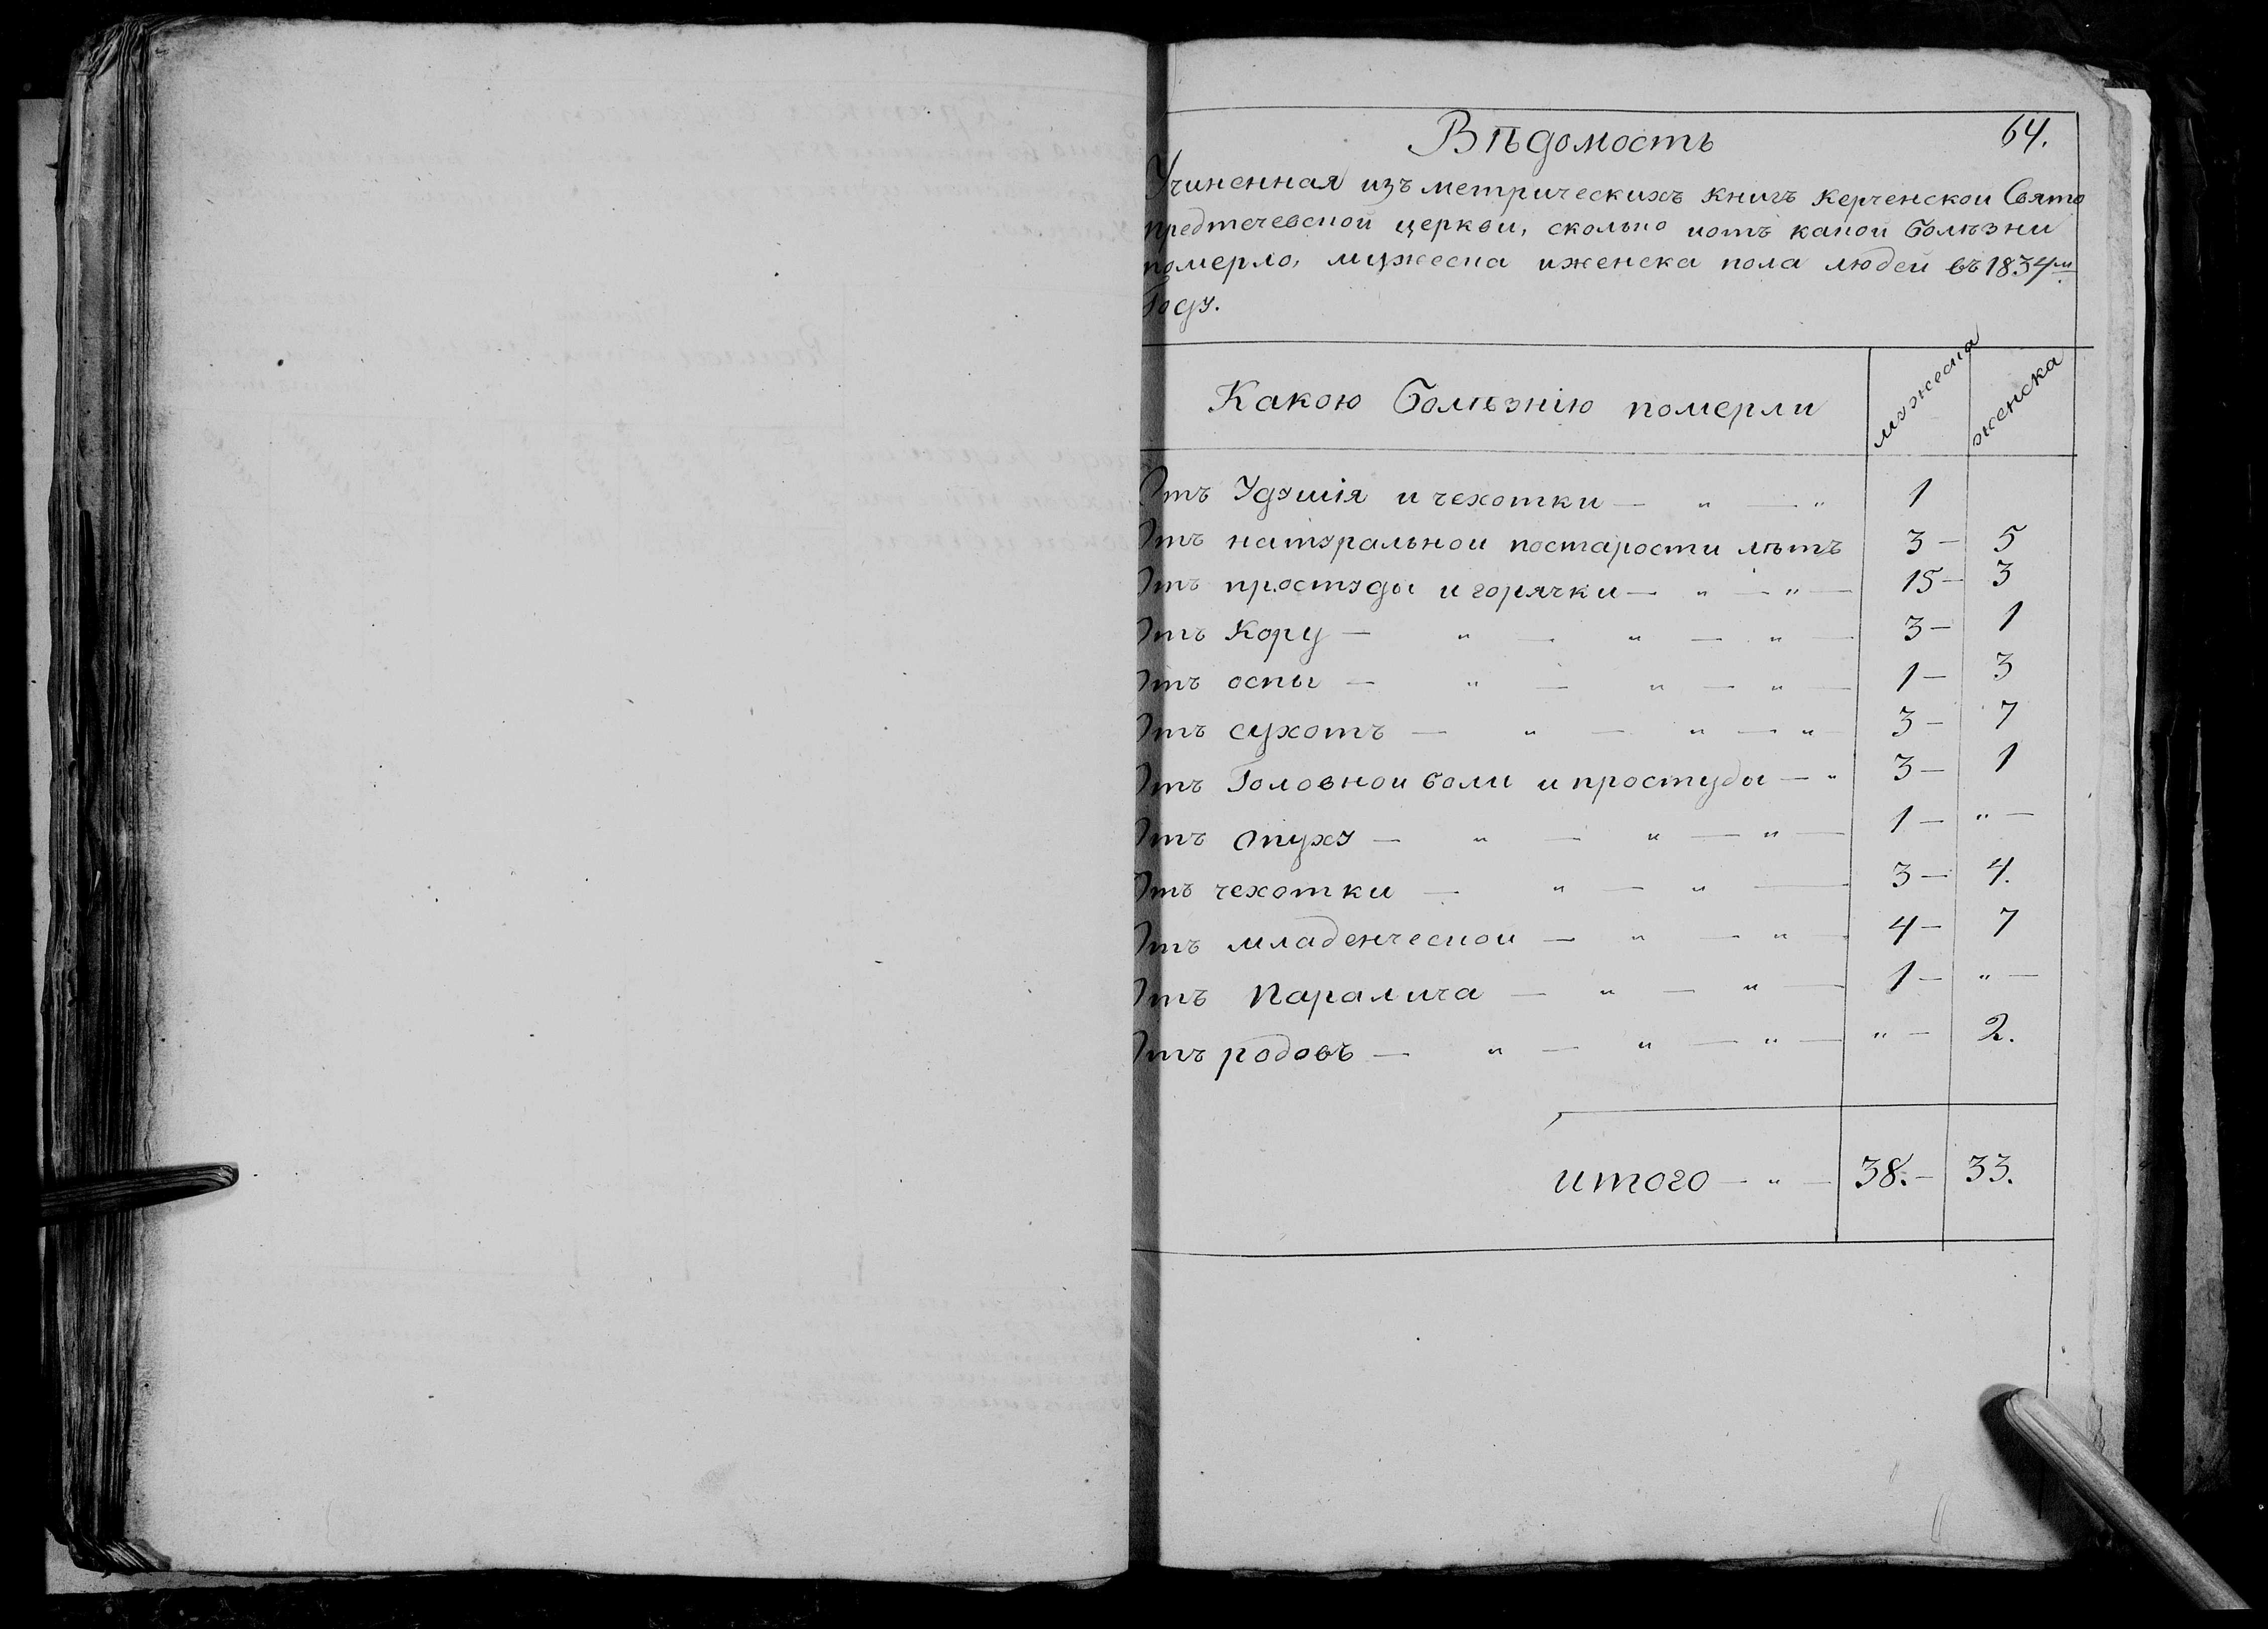 Вѣдомость
64.
Учиненная изъ метрическихъ книгъ Керченскои Свято
предтечевской церкви, сколько иотъ какои болѣзни
померло, мужеска иженска пола людеи въ 1834м
Году.
Какою болѣзнію померли мужеска женска
Отъ Удушія и чехотки — „ — „ 1
Отъ натуральнои постарости лѣтъ 3 — 5
Отъ простуды и горячки — „ — „ — 15 — 3
Отъ Кору — „ — „ — „ — 3 — 1
Отъ оспы — „ — „ — „ — 1 — 3
Отъ сухотъ — „ — „ — „ 3 — 7
Отъ Головнои боли и простуды — „ 3 — 1
Отъ опуху — „ — „ — „ — 1 — „ —
Отъ чехотки — „ — „ — 3 — 4.
Отъ младенческои — „ — „ — 4 — 7
Отъ Паралича — „ — „ — 1 — „ —
Отъ родовъ — „ — „ — „ — „ — 2.
итого — „ — 38. — 33.